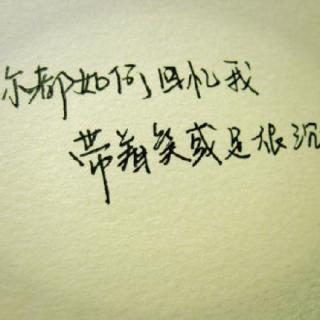 你都如何回忆我
带着笑或是很沉